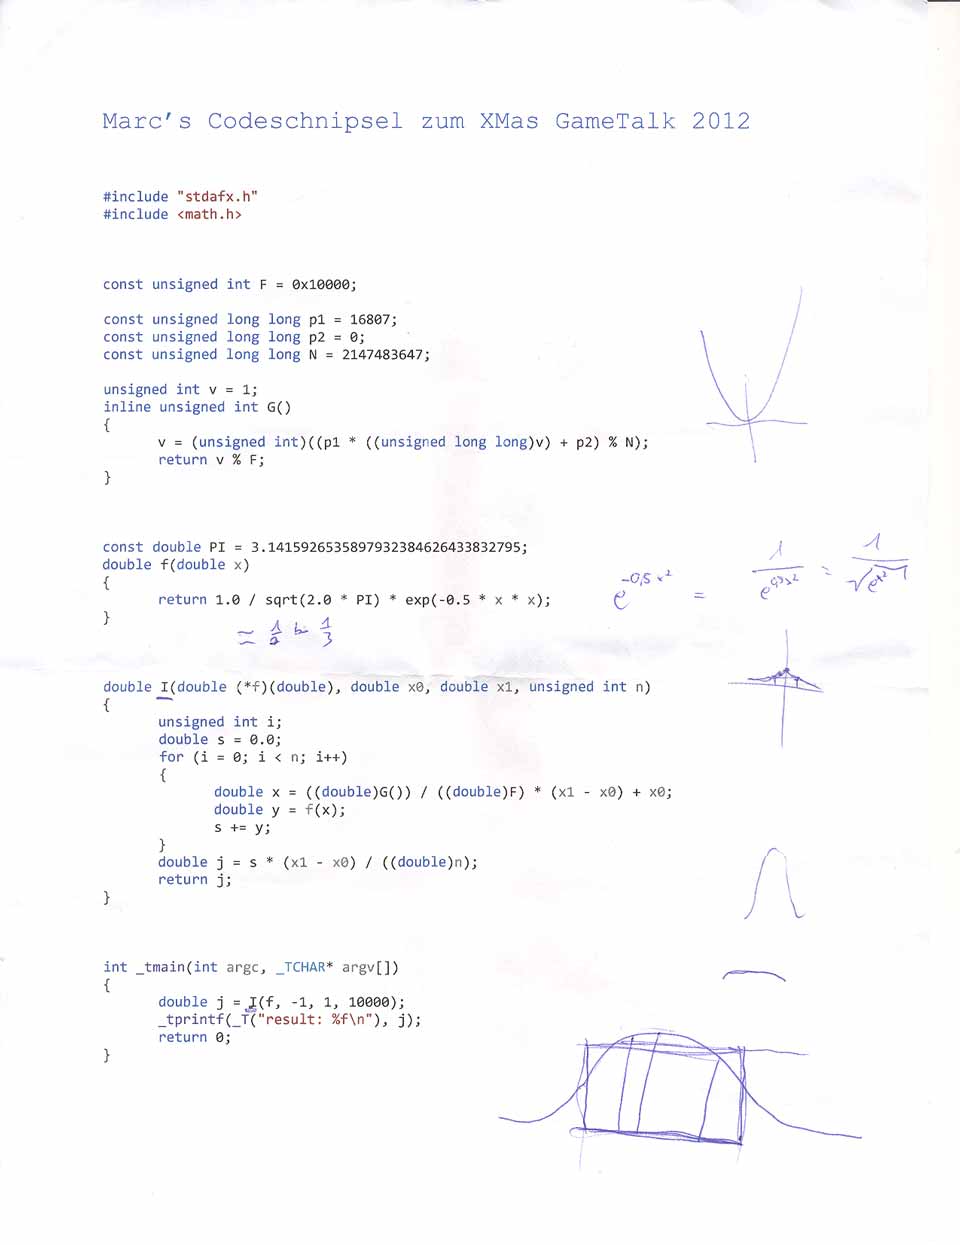 Marc's Codeschnipsel zum XMas GameTalk 2012
#include "stdafx.h"
#include <math.h>
const unsigned int F = 0x10000;
const unsigned long long p1 = 16807;
const unsigned long long p2 = 0;
const unsigned long long N = 2147483647;
unsigned int v = 1;
inline unsigned int G()
{
v = (unsigned int)((p1 * ((unsigned long long)v) + p2) % N);
return v % F;
}
const double PI = 3.1415926535897932384626433832795;
double f(double x)
{
return 1.0 / sqrt(2.0 * PI) * exp(-0.5 * x * x);
}
e^-0,5 x² = 1/e^0,5x² = 1/√e^x²
double I(double (*f)(double), double x0, double x1, unsigned int n)
{
unsigned int i;
double s = 0.0;
for (i = 0; i < n; i++)
{
double x = ((double)G()) / ((double)F) * (x1 - x0) + x0;
double y = f(x);
s += y;
}
double j = s * (x1 - x0) / ((double)n);
return j;
}
int _tmain(int argc, _TCHAR* argv[])
{
double j = I(f, -1, 1, 10000);
_tprintf(_T("result: %f\n"), j);
return 0;
}